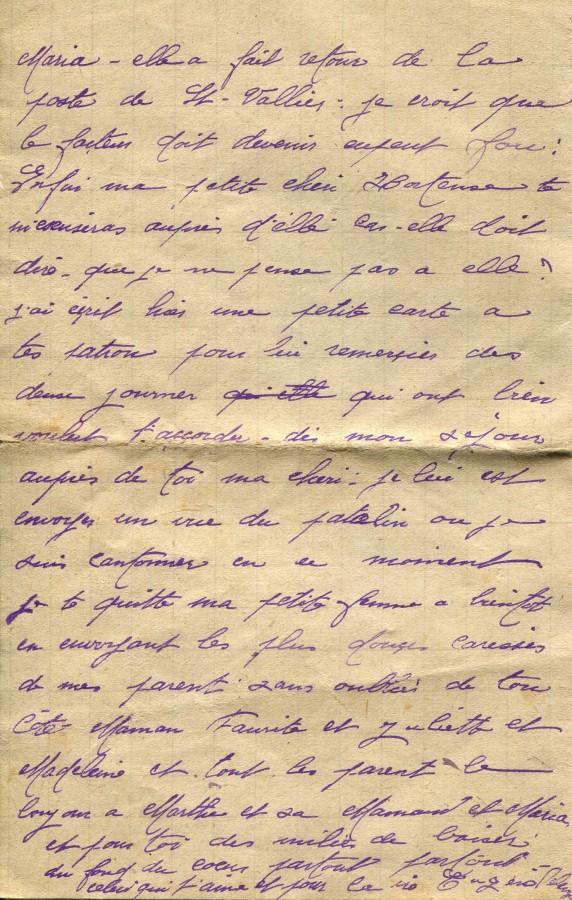 Maria - elle a fait retour de la
poste de St-Vallier - je croit que
le facteur doit devenir fou !
Enfin ma petite cheri Hortense te
auprès d'elle car-elle doit
diré - que je ne pense pas a elle ?
j'ai écrit hier une petite carte a
tes patron pour lui remercier des
deux journer qui elle qui ont bien
voulut t'accorder - dès mon séjour
auprès de toi ma cheri - je lui est
envoyer un vue du patelin ou je
suis cantonner en ce moment
je te quitte ma petite femme a bientôt
en envoyant les plus douces caresses
de mes parent sans oublier de ton
Côté Maman Faurite et Juliette et
Madeleine et tout les parent le
bonjour a Marthe et sa Maman et Maria
et pour toi des milier de baiser
du fond du coeur partout partout
celui qui t'aime et pour la vie Eugène